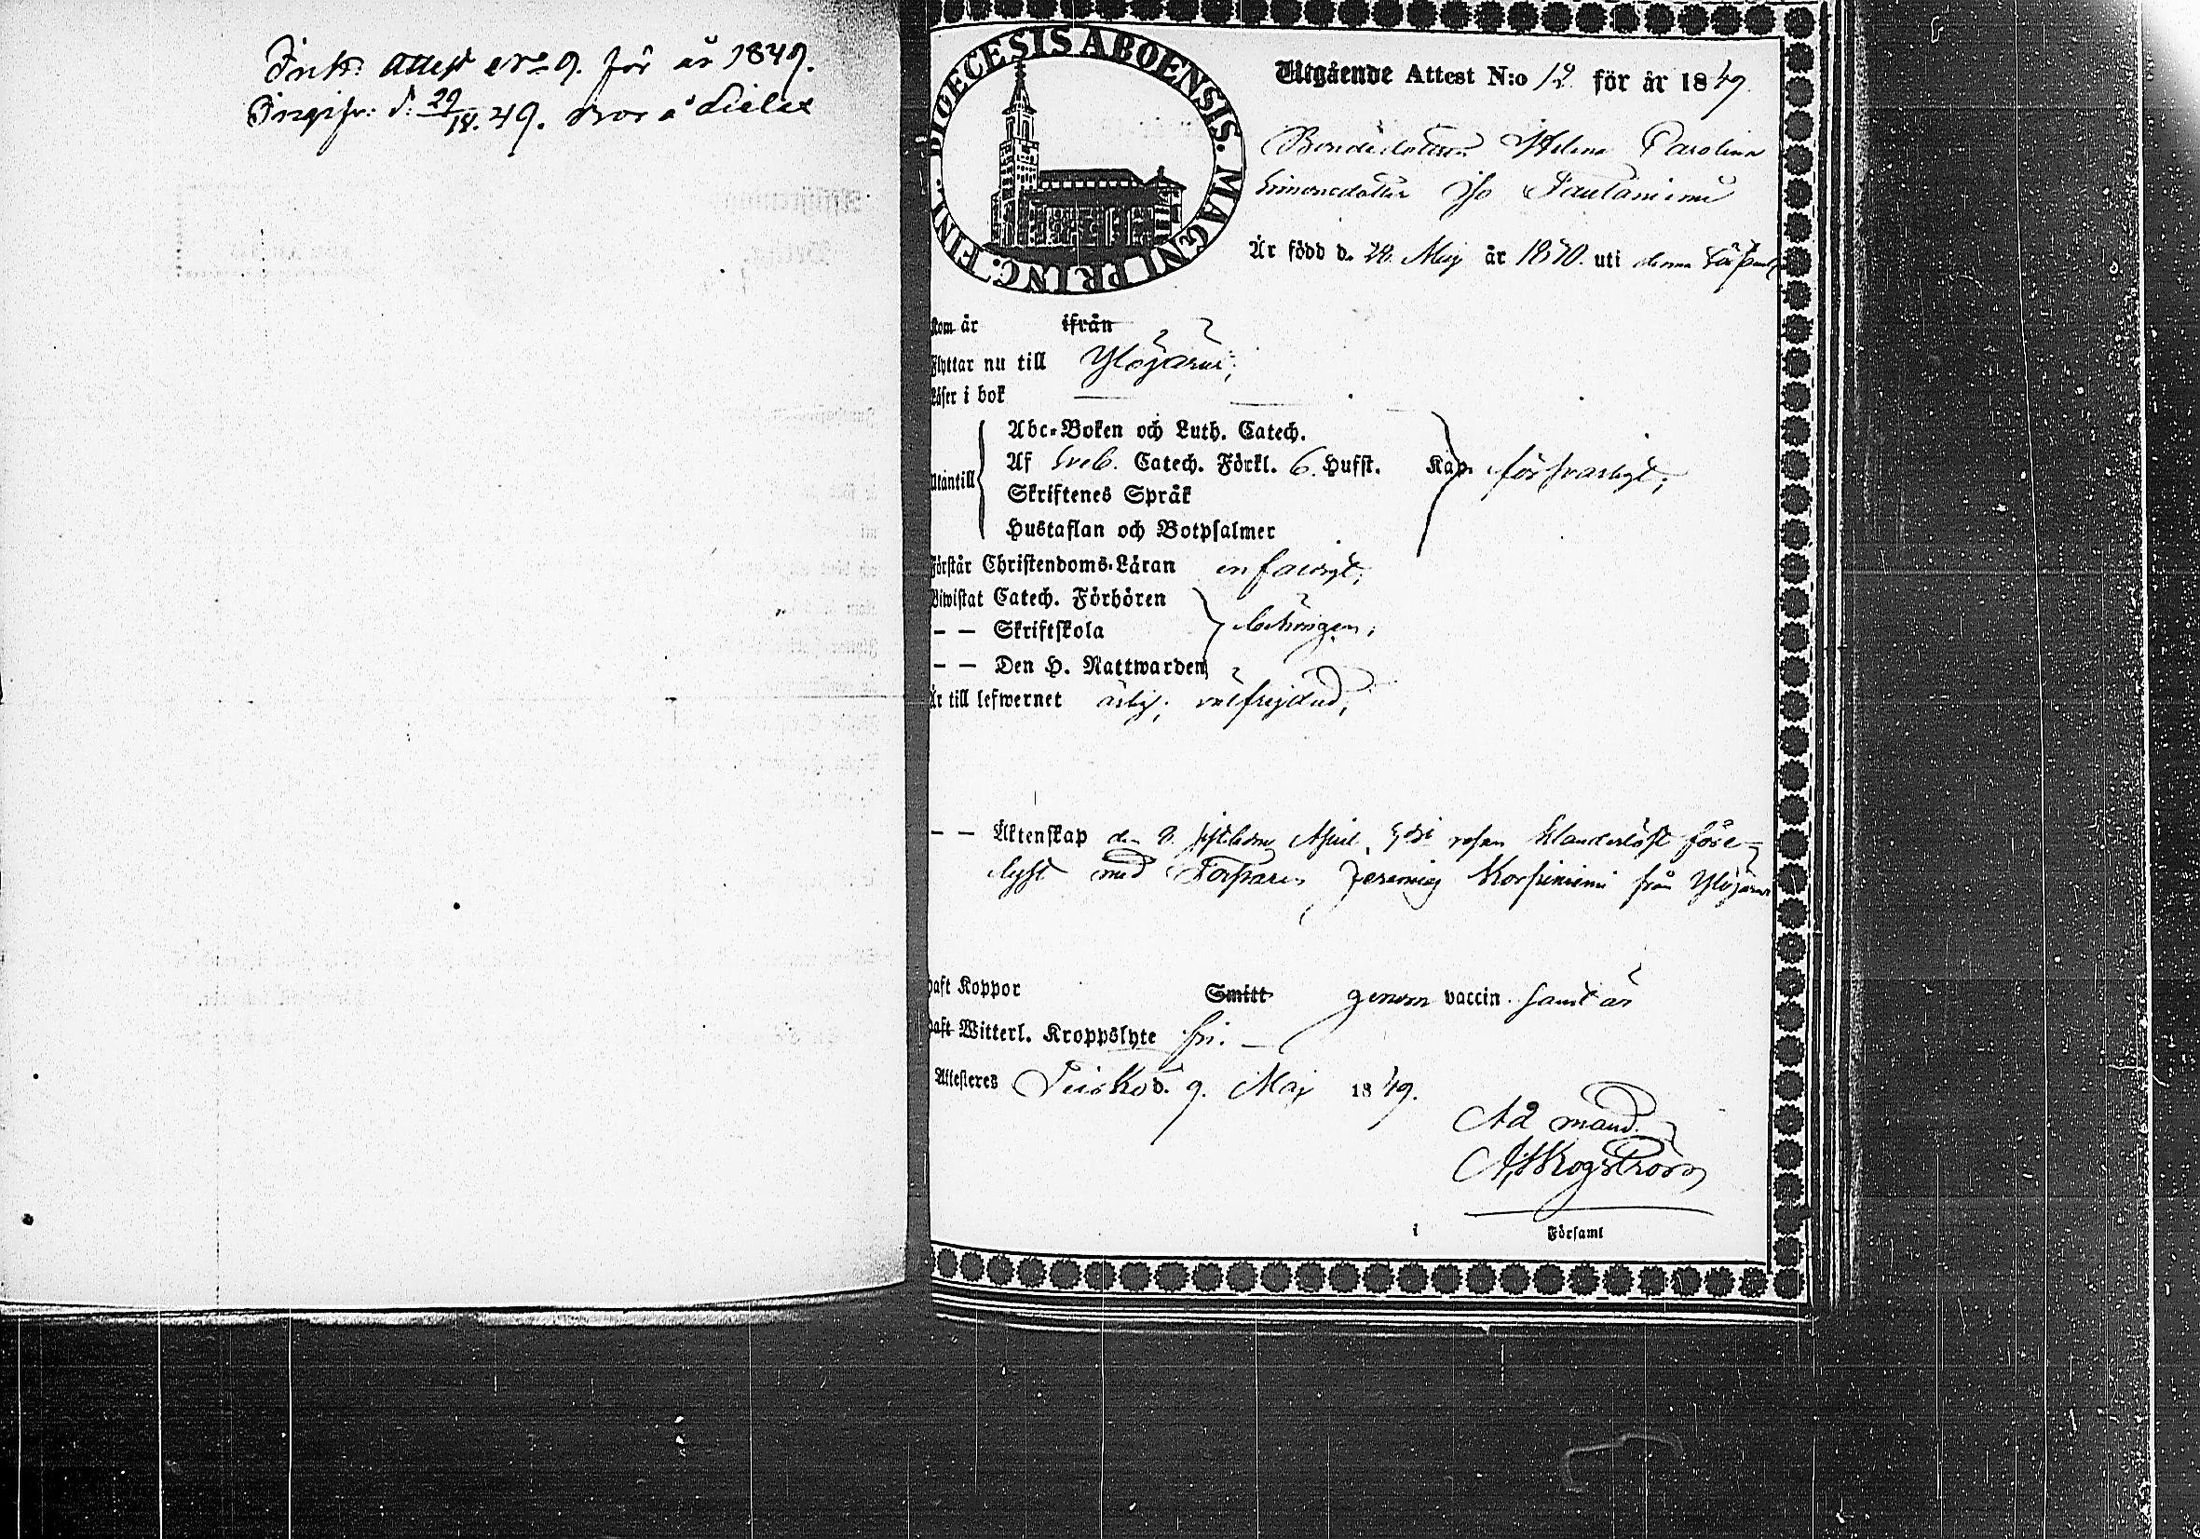 Ink: attest No 9. för år 1849.
d: 29/IV. 49. Bor å
DIOECESIS ABOENSIS. MAGNI PRINC. FINL.
Utgående Attest N:o 19 för år 1849.
Bondedottren Helena Carolina
Simonsdotter Iso Pautaniemi
Är född d. 28. Maj år 1830. uti denna
kom är ifrån
Flyttar nu till Ylöjärvi;
Läser i bok
Abc-Boken och Luth. Catech.
Utantill Af Sveb. Catech. Förkl. 6. Hufst. Kap. försvarligt;
Skriftenes Språk
Hustaflan och Botpsalmer
Förstår Christendoms-Läran enfaldigt;
Biwistat Catech. Förhören
— — Skriftskola behörigen;
— — Den H. Nattwarden
Är till lefwernet ärlig; välfrejdad;
— — Äktenskap den 8. sistledne April, klanderlöst före-
lyst med Torparen Jeremias Korpiniemi från Ylöjärvi
haft Koppor Smitt genom vaccin. samt är
haft Witterl. Kroppslyte fri. —
Attesteres Teisko d. 9. Maj 1849.
Ad mand.
i Församl